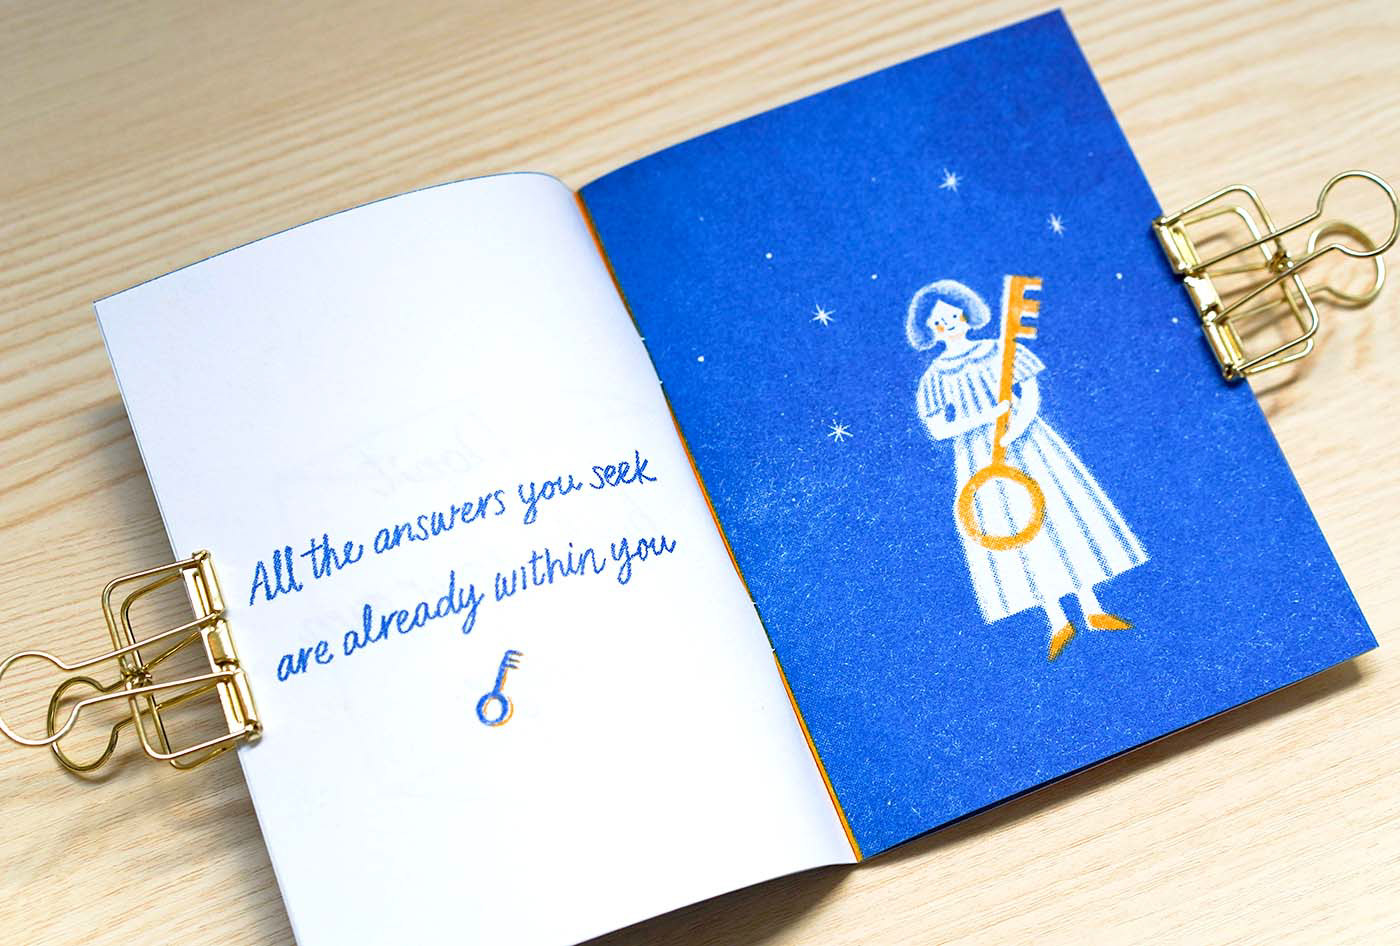 All the answers you seek
are already within you